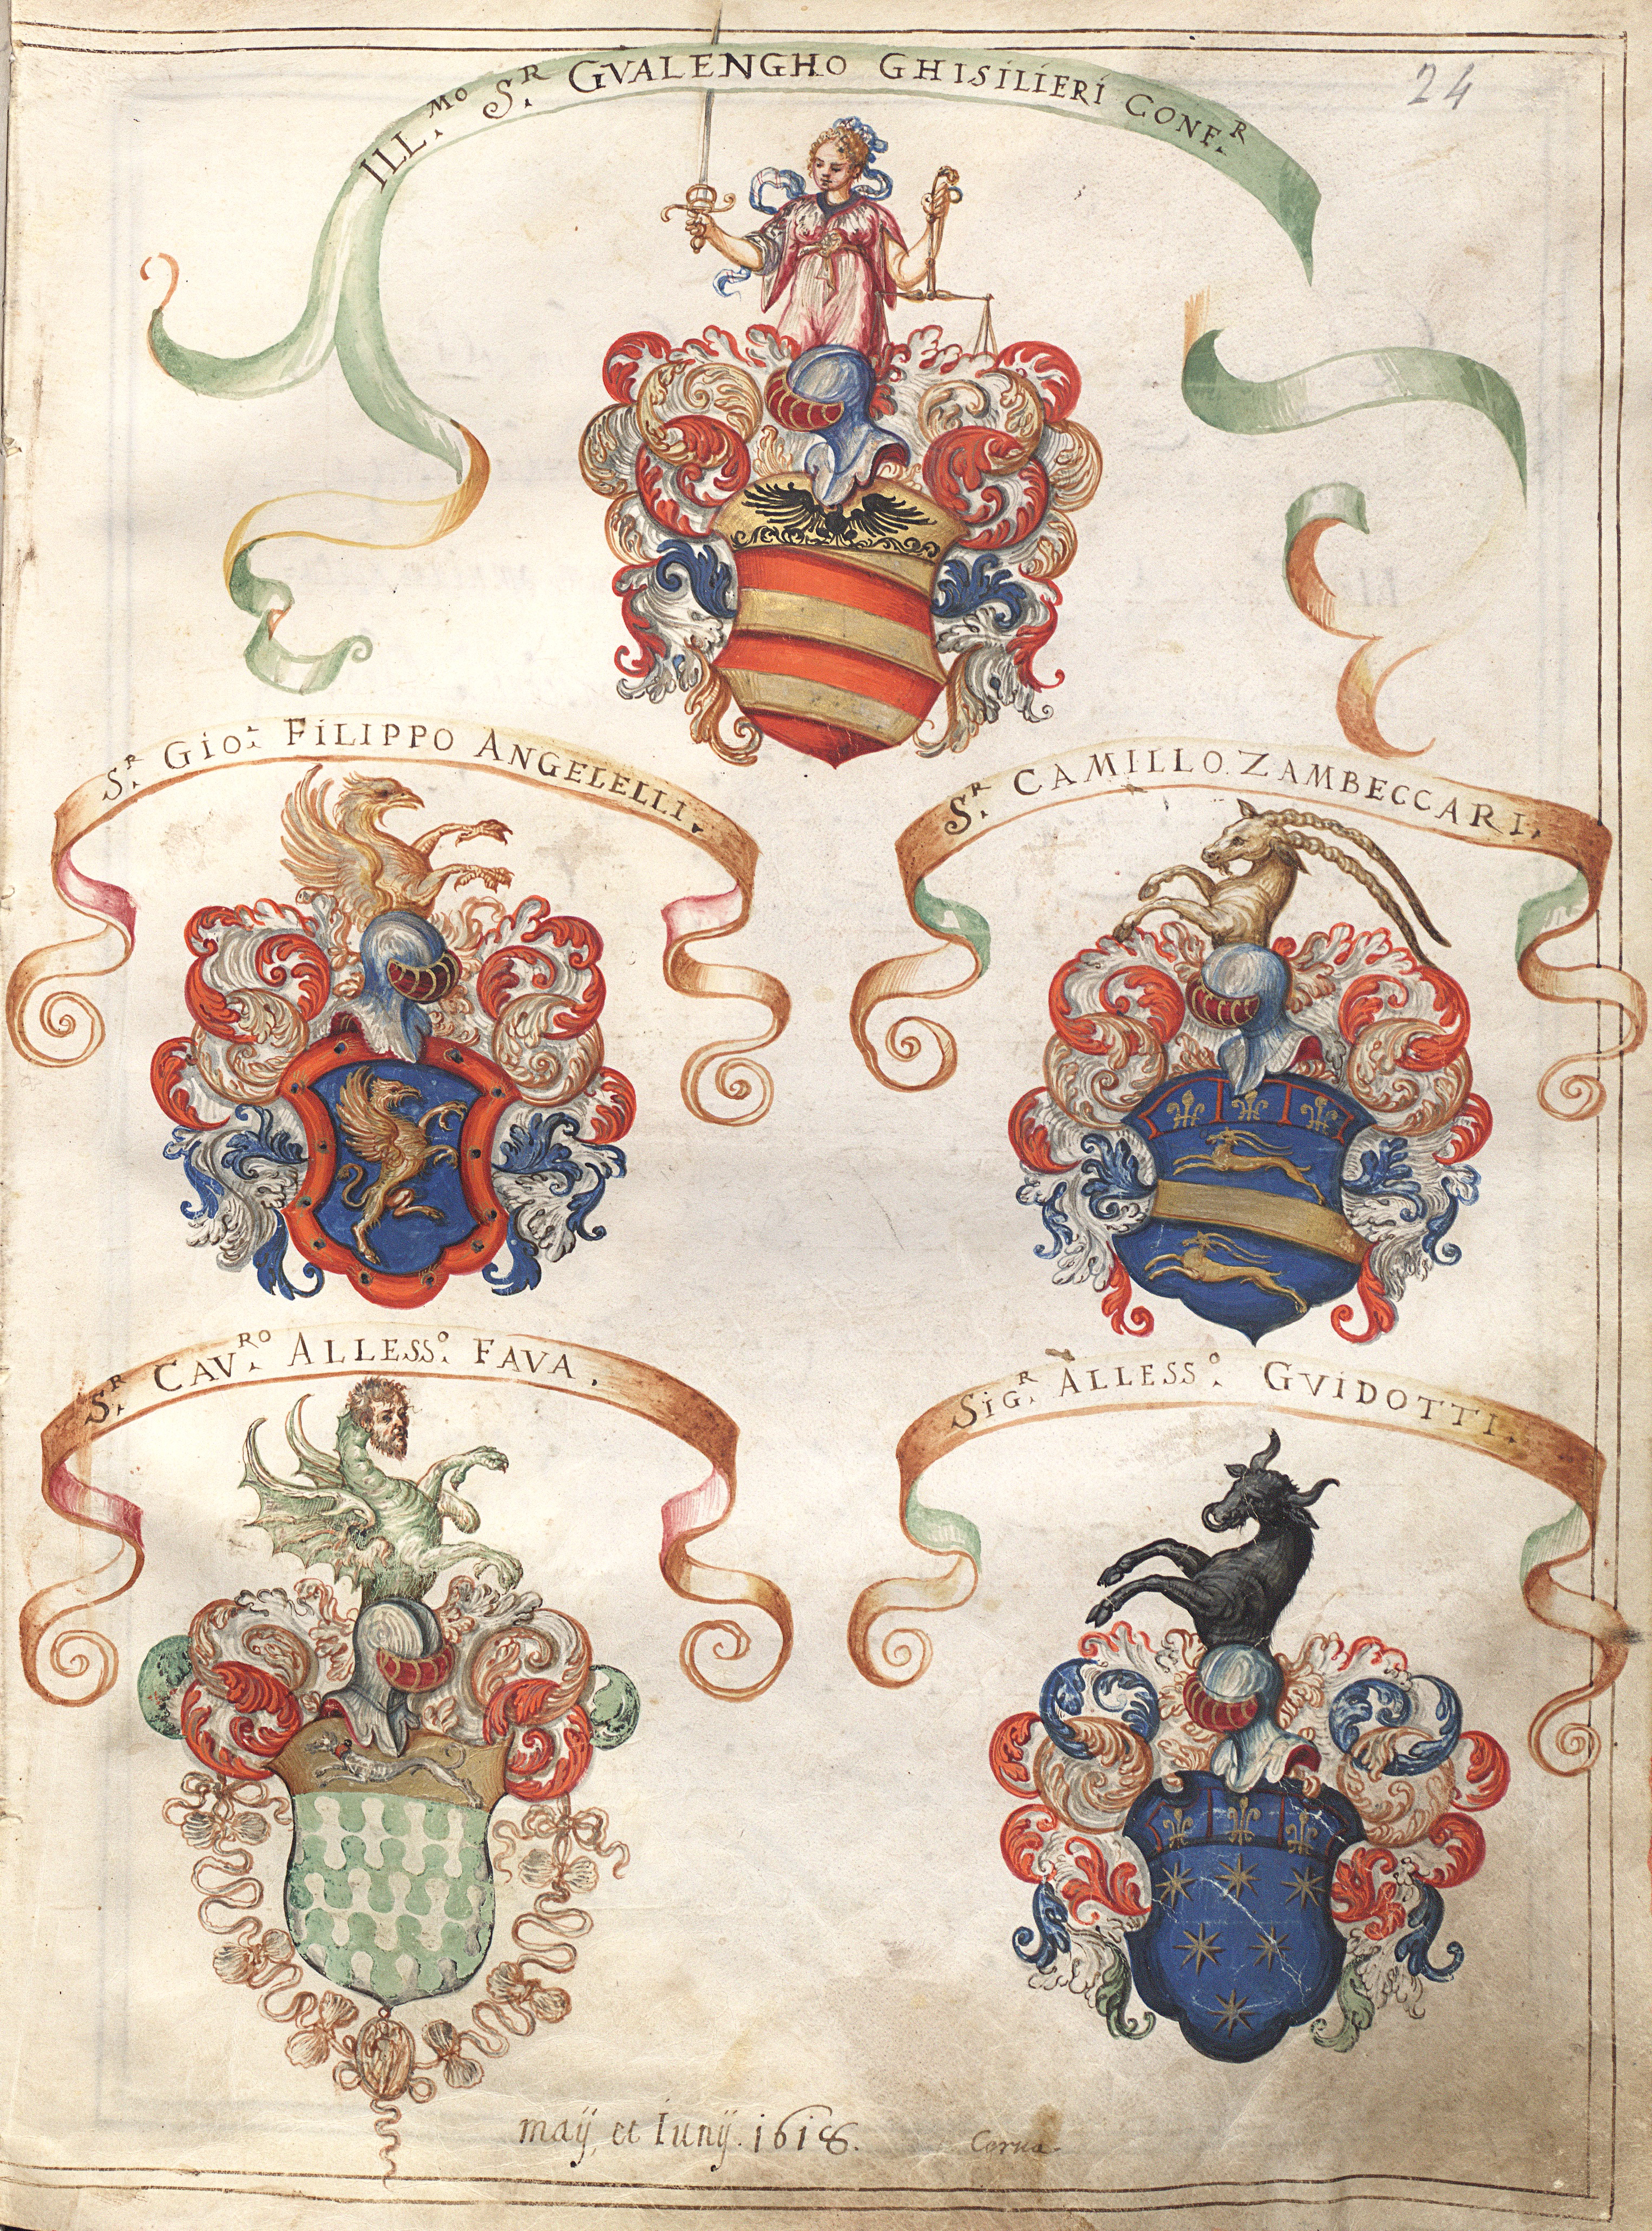 24
ILL.MO S.R GVALENGHO GHISILIERI CONF.R
S.R GIO: FILIPPO ANGELELLI.
S.R CAMILLO. ZAMBECCARI.
S.R CAV.RO ALLESS.o FAVA.
SIG.R ALLESS.o GVIDOTTI.
maÿ, et Iunÿ. 1618.